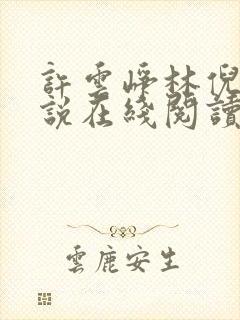 許雲崢林倪
説在綫閱讀
雲鹿安生